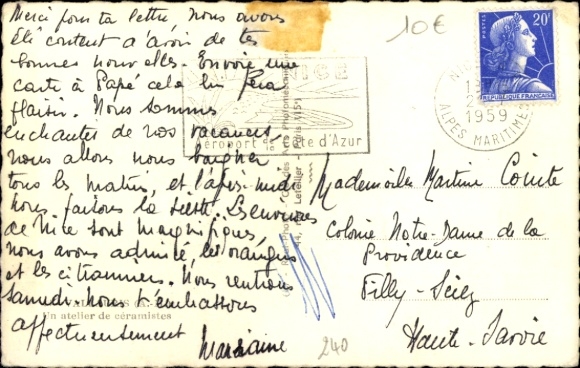 Merci pour ta lettre, nous avons
été content d'avoir de tes
bonnes nouvelles. Envoie une
carte à Papé cela lui fera
plaisir. Nous sommes
enchantés de nos vacances,
nous allons nous baigner
tous les matins, et l'après-midi
nous faisons la sieste. Les environs
de Nice sont magnifiques,
nous avons admiré, les orangers
et les citronniers. Nous rentrons
samedi. Nous t'embrassons
affectueusement
Marraine
Un atelier de céramistes
10€
NICE
Aéroport de la Côte d'Azur
POSTES
20F
REPUBLIQUE FRANÇAISE
1959
ALPES MARITIMES
Letellier - Paris XV
Mademoiselle Martine Cointe
Colonie Notre-Dame de la
Providence
Filly-Sciez
Haute-Savoie
240